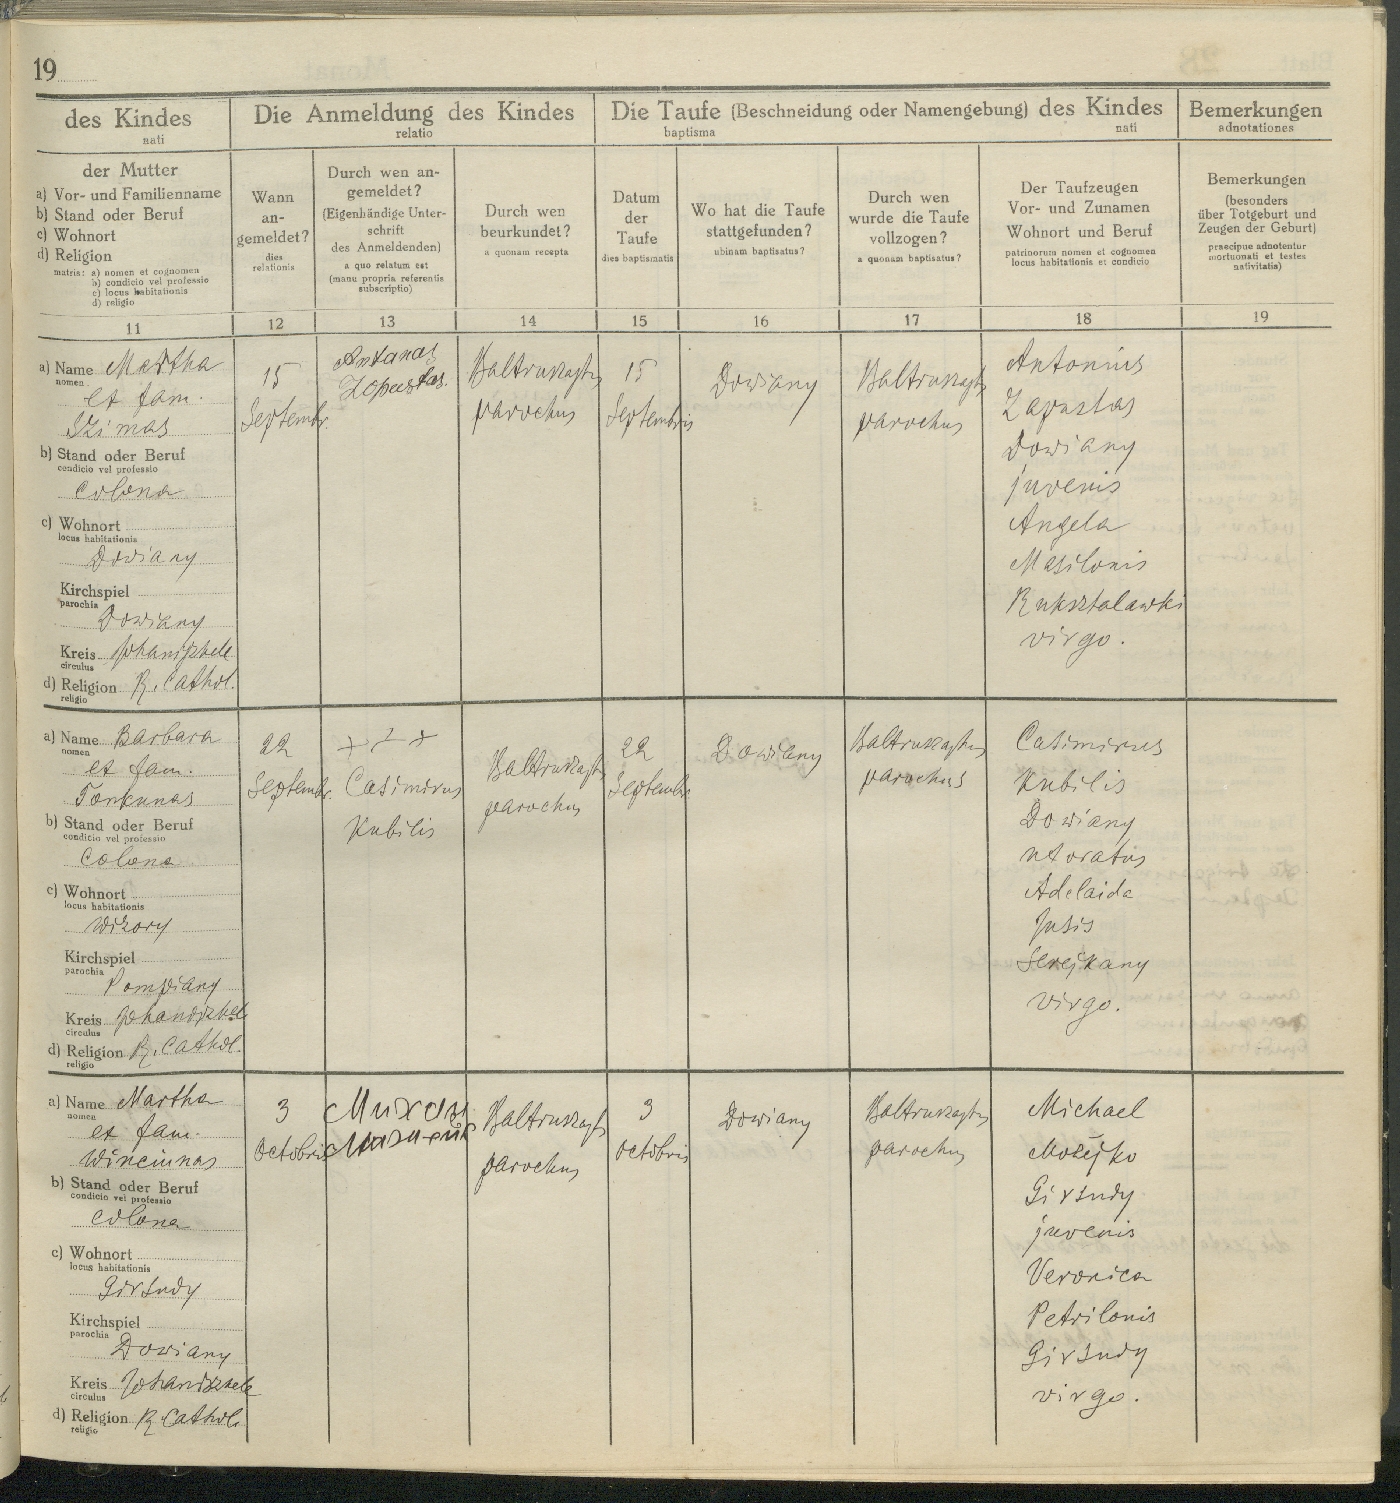 19
des Kindes
nati
Die Anmeldung des Kindes
relatio
Die Taufe (Beschneidung oder Namengebung) des Kindes
baptisma nati
Bemerkungen
adnotationes
der Mutter
a) Vor- und Familienname
b) Stand oder Beruf
c) Wohnort
d) Religion
matris: a) nomen et cognomen
b) condicio vel professio
c) locus habitationis
d) religio
Wann
an-
gemeldet?
dies
relationis
Durch wen an-
gemeldet?
(Eigenhändige Unter-
schrift
des Anmeldenden)
a quo relatum est
(manu propria referentis
subscriptio)
Durch wen
beurkundet?
a quonam recepta
Datum
der
Taufe
dies baptismatis
Wo hat die Taufe
stattgefunden?
ubinam baptisatus?
Durch wen
wurde die Taufe
vollzogen?
a quonam baptisatus?
Der Taufzeugen
Vor- und Zunamen
Wohnort und Beruf
patrinorum nomen et cognomen
locus habitationis et condicio
Bemerkungen
(besonders
über Totgeburt und
Zeugen der Geburt)
praecipue adnotentur
mortuonati et testes
nativitatis)
11 12 13 14 15 16 17 18 19
a) Name Martha
nomen
et fam.
Szimas
b) Stand oder Beruf
condicio vel professio
Colona
c) Wohnort
locus habitationis
Dowiany
Kirchspiel
parochia
Dowiany
Kreis Johanischele
circulus
d) Religion R. Cathol.
religio
15
Septembr.
Antanas
Zopustas.
Baltruszajtys
parochus
15
Septembris
Dowiany
Baltruszajtys
parochus
Antonius
Zapustas
Dowiany
juvenis
Angela
Masilonis
Ruksztalawki
virgo.
a) Name Barbara
nomen
et fam.
Tonkunas
b) Stand oder Beruf
condicio vel professio
Colona
c) Wohnort
locus habitationis
Wizory
Kirchspiel
parochia
Pompiany
Kreis Johanischele
circulus
d) Religion R. Cathol.
religio
22
Septembr.
+ + +
Casimirus
Kubilis
Baltruszajtys
parochus
22
Septembr.
Dowiany
Baltruszajtys
parochus
Casimirus
Kubilis
Dowiany
uxoratus
Adelaida
Jusis
Serejkany
virgo.
a) Name Martha
nomen
et fam.
Winciunas
b) Stand oder Beruf
condicio vel professio
Colona
c) Wohnort
locus habitationis
Girsudy
Kirchspiel
parochia
Dowiany
Kreis Johanischele
circulus
d) Religion R. Cathol.
religio
3
Octobris
Михаил
Baltruszajtys
parochus
3
Octobris
Dowiany
Baltruszajtys
parochus
Michael
Možejko
Girsudy
juvenis
Veronica
Petrilonis
Girsudy
virgo.